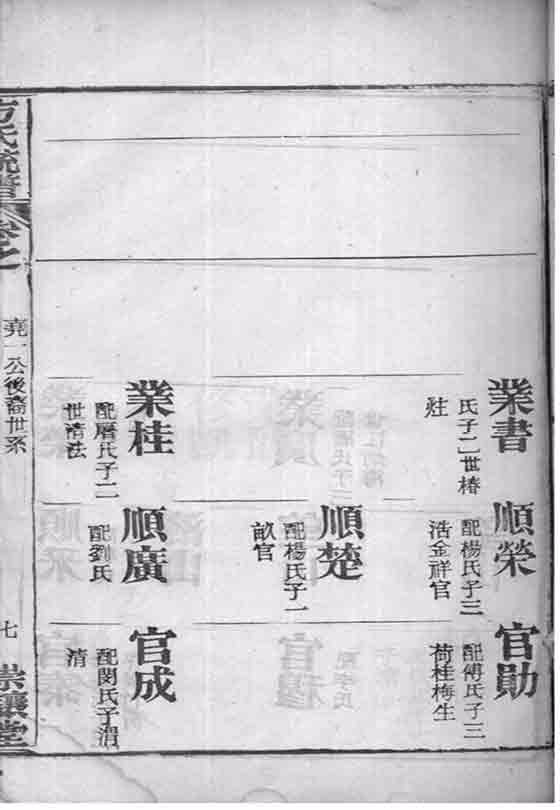 業書
氏子二世椿
業桂
配氏子二
世清法
順榮
配楊氏子三
浩金祥官
順楚
配楊氏子一
畝官
順廣
配劉氏
官勛
配傅氏子三
荷桂梅生
官成
配閔氏子渭
清
方氏統譜
卷之
堯一公後裔世系
七
崇讓堂